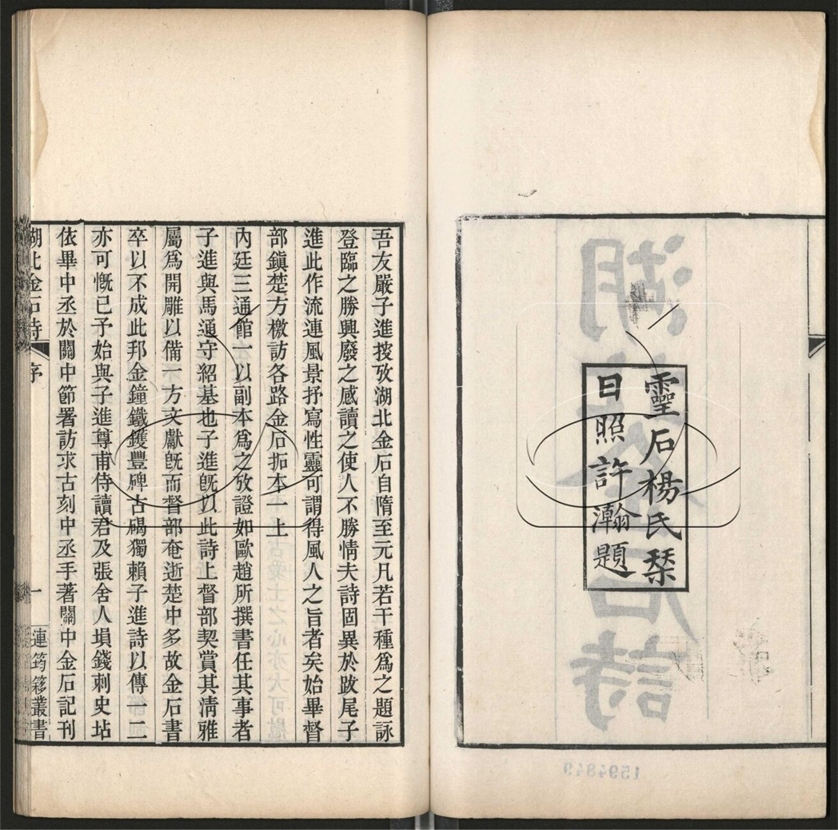 靈石楊氏琹
日照許瀚題
湖北金石詩
1594849
吾友嚴子進按攷湖北金石自隋至元凡若干種爲之題詠
登臨之勝興廢之感讀之使人不勝情夫詩固異於跋尾子
進此作流連風景抒寫性靈可謂得風人之旨者矣始畢督
部鎭楚方檄訪各路金石拓本一上
內廷三通館一以副本爲之攷證如歐趙所撰書任其事者
子進與馬通守紹基也子進旣以此詩上督部契賞其淸雅
屬爲開雕以備一方文獻旣而督部奄逝楚中多故金石書
卒以不成此邦金鐘鐵鑊豐碑古碣獨賴子進詩以傳一二
亦可慨已予始與子進尊甫侍讀君及張舍人塤錢刺史坫
依畢中丞於關中節署訪求古刻中丞手著關中金石記刊
湖北金石詩
序
一
連筠簃叢書